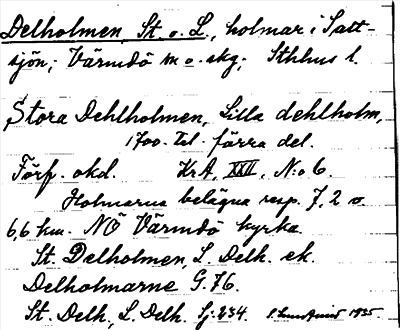 Delholmen, St. o. L., holmar i Salt-
sjön; Värmdö m o. skg; Sthhus l.
Stora Dehlholmen, Lilla dehlholm,
1700-tal. förra del.
Förf. okd. KrA, XXII, N:o 6.
Holmarna belägna resp. 7,2 o.
6,6 km. NÖ Värmdö kyrka
St. Delholmen, L. Delh. ek.
Delholmarne G. 76.
St. Delh, L. Delh. Sj: 234. 1935